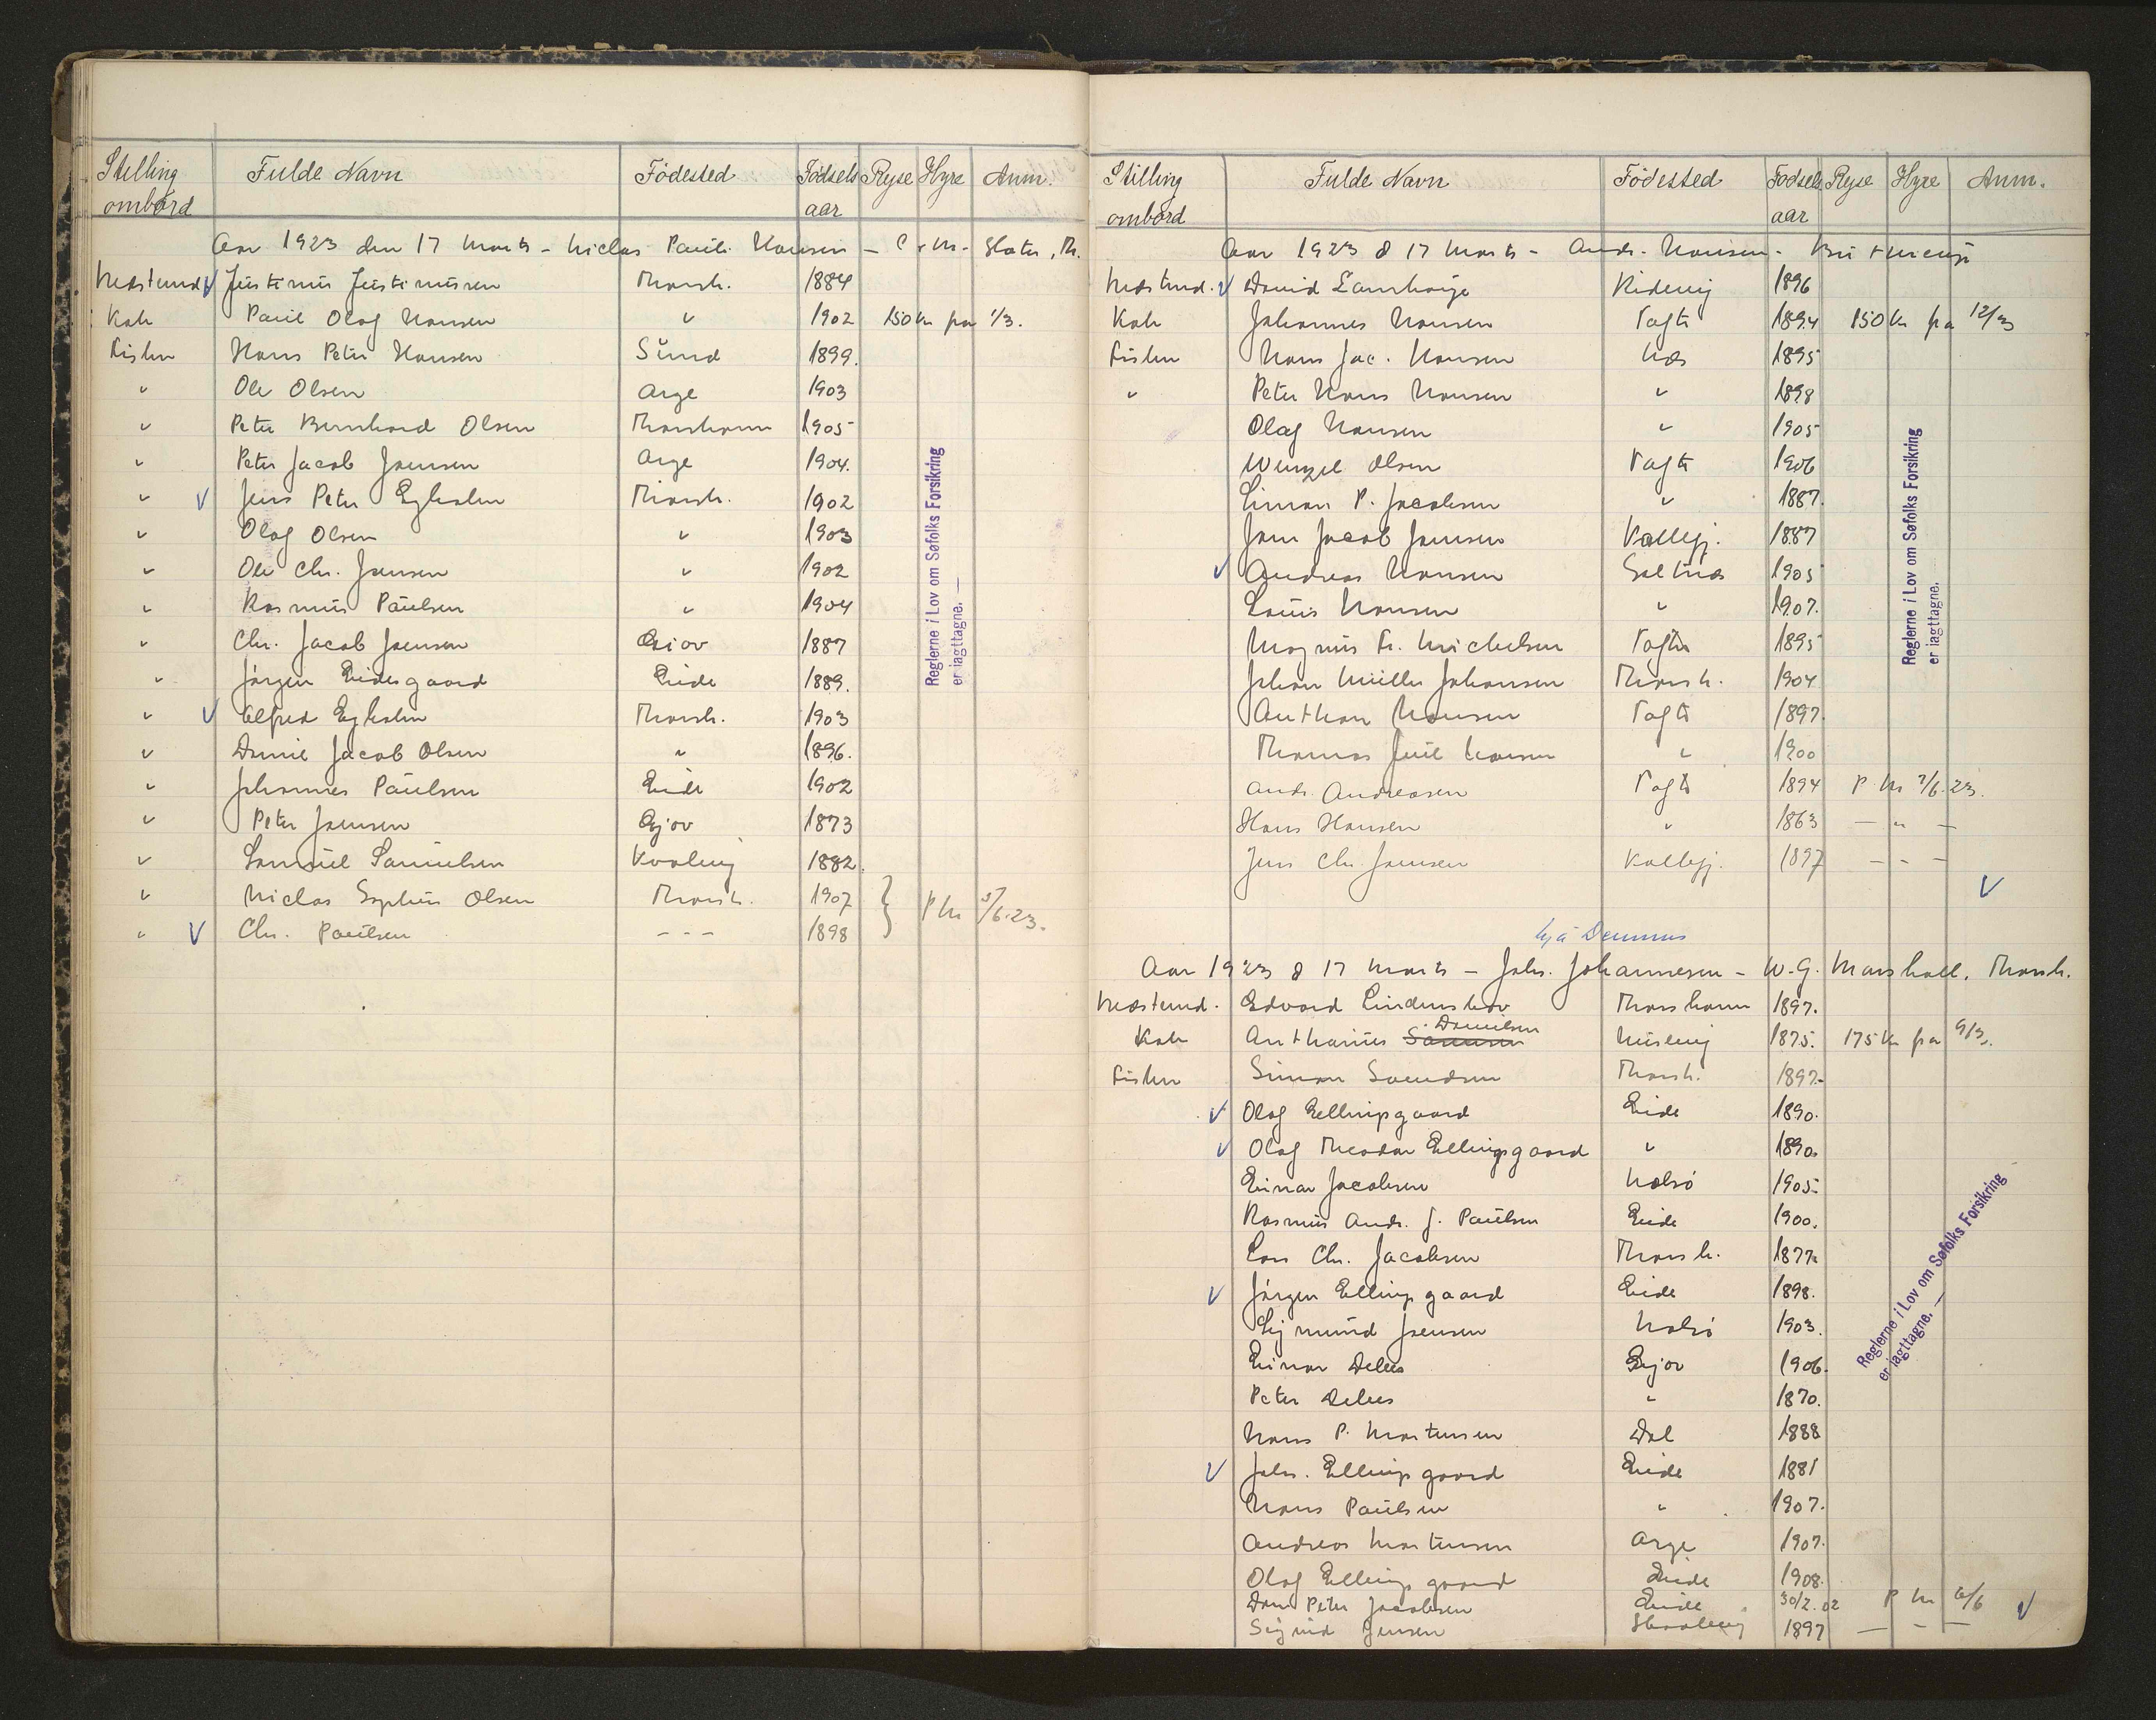 Stilling ombord Fulde Navn Födested Födsels aar Ryse Hyre Anm.
Aar 1923 den 17 Marts - Niclas Pauli Hansen - Slater, Th.
Næstmd √ Justinus Justinussen Thorsh. 1884
Kok Paul Olaf Hansen " 1902 150 kr fra 1/3.
Fisker Hans Peter Hansen Sund 1899.
" Ole Olsen Arge 1903
" Peter Bernhard Olsen Thorshavn 1905
" Peter Jacob Joensen Arge 1904.
" √ Jens Peter Egholm Thorsh. 1902
" Olaf Olsen " 1903
" Ole Chr. Joensen " 1902
" Rasmus Paulsen " 1904
" Chr. Jacob Joensen Gjov 1887
" Jörgen Eidesgaard Eide 1889.
" √ Alfred Egholm Thorsh. 1903
" Daniel Jacob Olsen " 1896.
" Johannes Paulsen Eide 1902
" Peter Joensen Gjov 1873
" Samuel Samuelsen Kvalvig 1882.
" Niclas Sophus Olsen Thorsh. 1907 } P M 5/6.23.
" √ Chr. Paulsen - - - 1898
Reglerne i Lov om Søfolks Forsikring
er iagttagne. —
Stilling ombord Fulde Navn Födested Födsels aar Ryse Hyre Anm.
Aar 1923 d 17 Marts - Andr. Hansen -
Næstmd. √ David Lamhauge Ridevig 1896
Kok Johannes Hansen Tofte 1894 150 kr fra 12/3
Fisker Hans Jac. Hansen Næs 1895
" Peter Hans Hansen " 1898
Olaf Hansen " 1905
Wenzel Olsen Tofte 1906
Simon P. Jacobsen " 1887.
Joen Jacob Joensen Kollefj. 1887
√ Andreas Hansen Saltnæs 1905
Louis Hansen " 1907.
Magnus Fr. Michelsen Tofte 1895
Johan Müller Johansen Thorsh. 1904
Anthon Hansen Tofte 1897.
Thomas Juul Hansen " 1900
Andr. Andreasen Tofte 1894 P M 7/6.23.
Hans Hansen " 1863 — " —
Jens Chr. Joensen Kollefj. 1897 — - —
√
Reglerne i Lov om Søfolks Forsikring
er iagttagne.
Aar 1923 d 17 Marts - Johs. Johannesen - W. G. Marshall, Thorsh.
Næstmd. Edvard Lindenskov Thorshavn 1897.
Danielsen
Kok Anthonius Sørensen 1875. 175 kr fra 9/3.
Fisker Simon Svendsen Thorsh. 1897.
√ Olaf Ellingsgaard Eide 1890.
√ Olaf Theodor Ellingsgaard " 1890.
Einar Jacobsen Nolsö 1905.
Rasmus Andr. J. Paulsen Eide 1900.
Lars Chr. Jacobsen Thorsh. 1877.
√ Jörgen Ellingsgaard Eide 1898.
Sigmund Joensen Nolsö 1903.
Einar Debes Gjov 1906.
Peter Debes " 1870.
Hans P. Mortensen Dal 1888
√ Johs. Ellingsgaard Eide 1881
Hans Paulsen " 1907.
Andreas Mortensen Arge 1907.
Olaf Ellingsgaard Eide 1908.
Dan Peter Jacobsen Eide 30/2.02 P M 6/6 √
Sigvid Jensen 1897 — - —
Reglerne i Lov om Søfolks Forsikring
er iagttagne. —